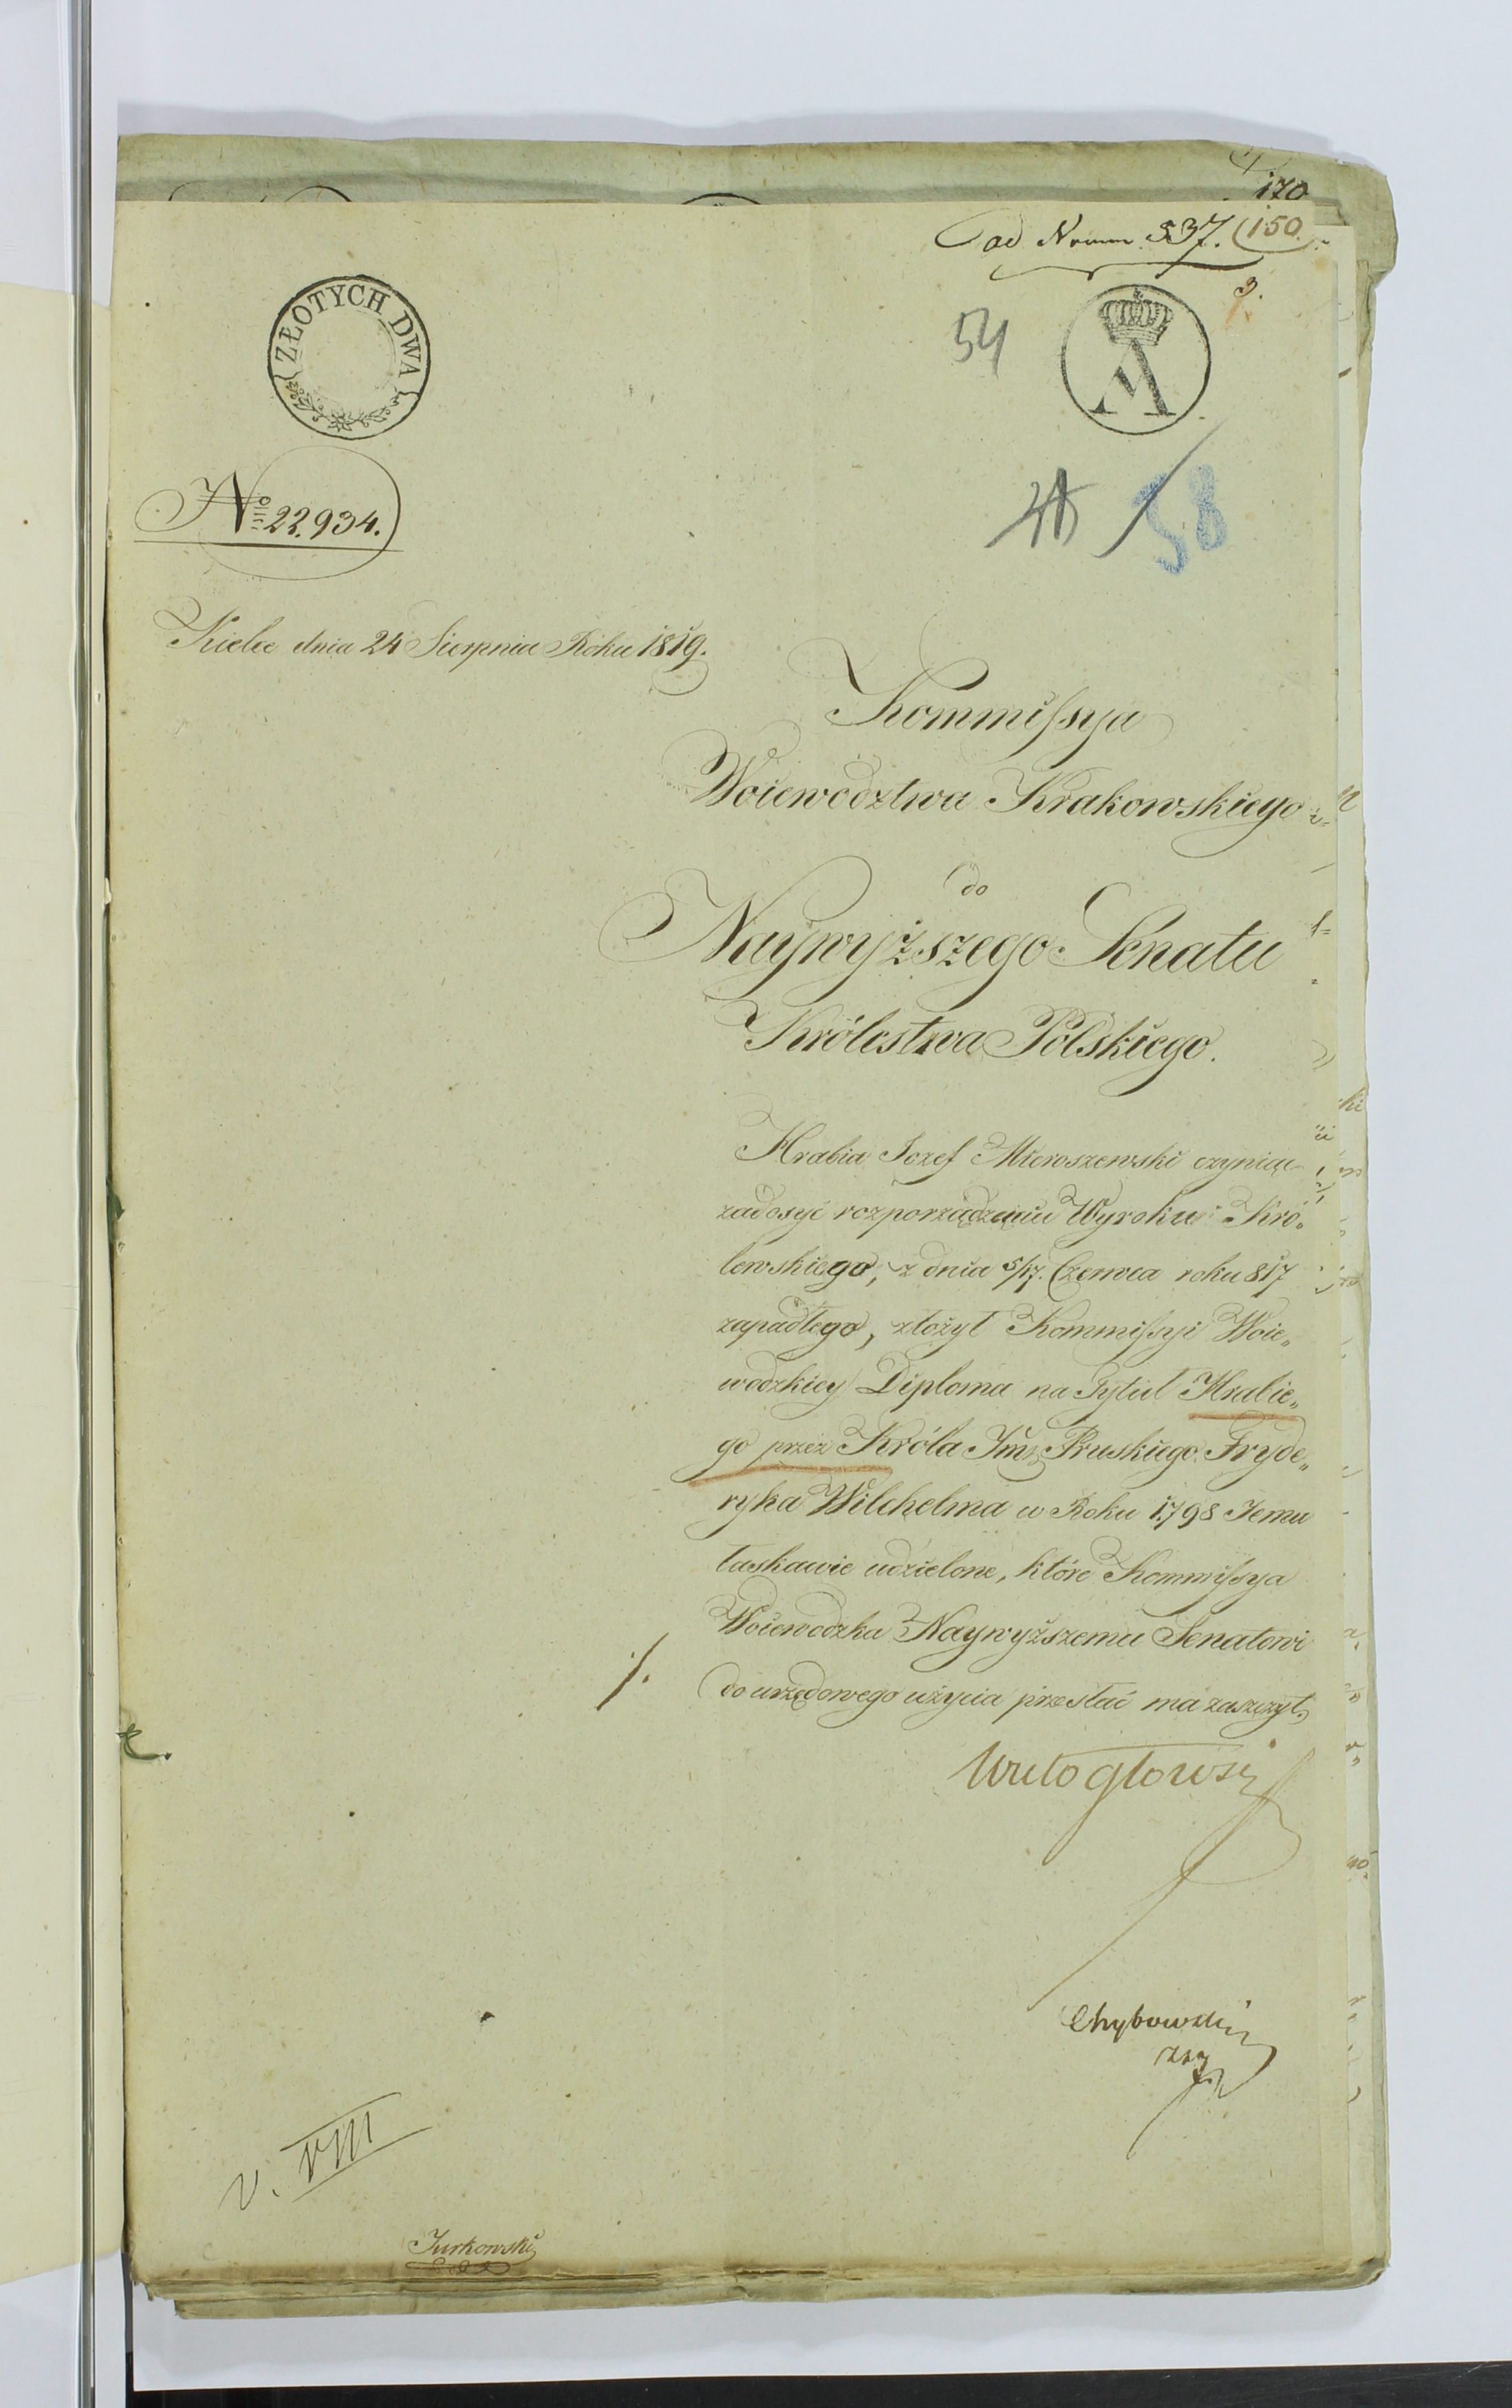 170
ad Num 537. 150.
2.
ZŁOTYCH DWA
54
A
58
No 22.934.
Kielce dnia 24 Sierpnia Roku 1819.
Kommissya
Woiewodztwa Krakowskiego
do
Naywyższego Senatu
Królestwa Polskiego.
Hrabia Jozef Mieroszewski czyniąc
zadosyć rozporządzeniu Wyroku Kró„
lewskiego, z dnia 5/17. Czerwca roku 817
zapadłego, złożył Kommissyi Woie„
wodzkiey Diploma na Tytuł Hrabie„
go przez Króla Jmci Pruskiego Fryde„
ryka Wilchelma w Roku 1798 Jemu
łaskawie udzielone, które Kommissya
Woiewodzka Naywyższemu Senatowi
do urzędowego użycia przesłać ma zaszczyt.
Wielogłowski
Chybowski
v. VIII
Jurkowski